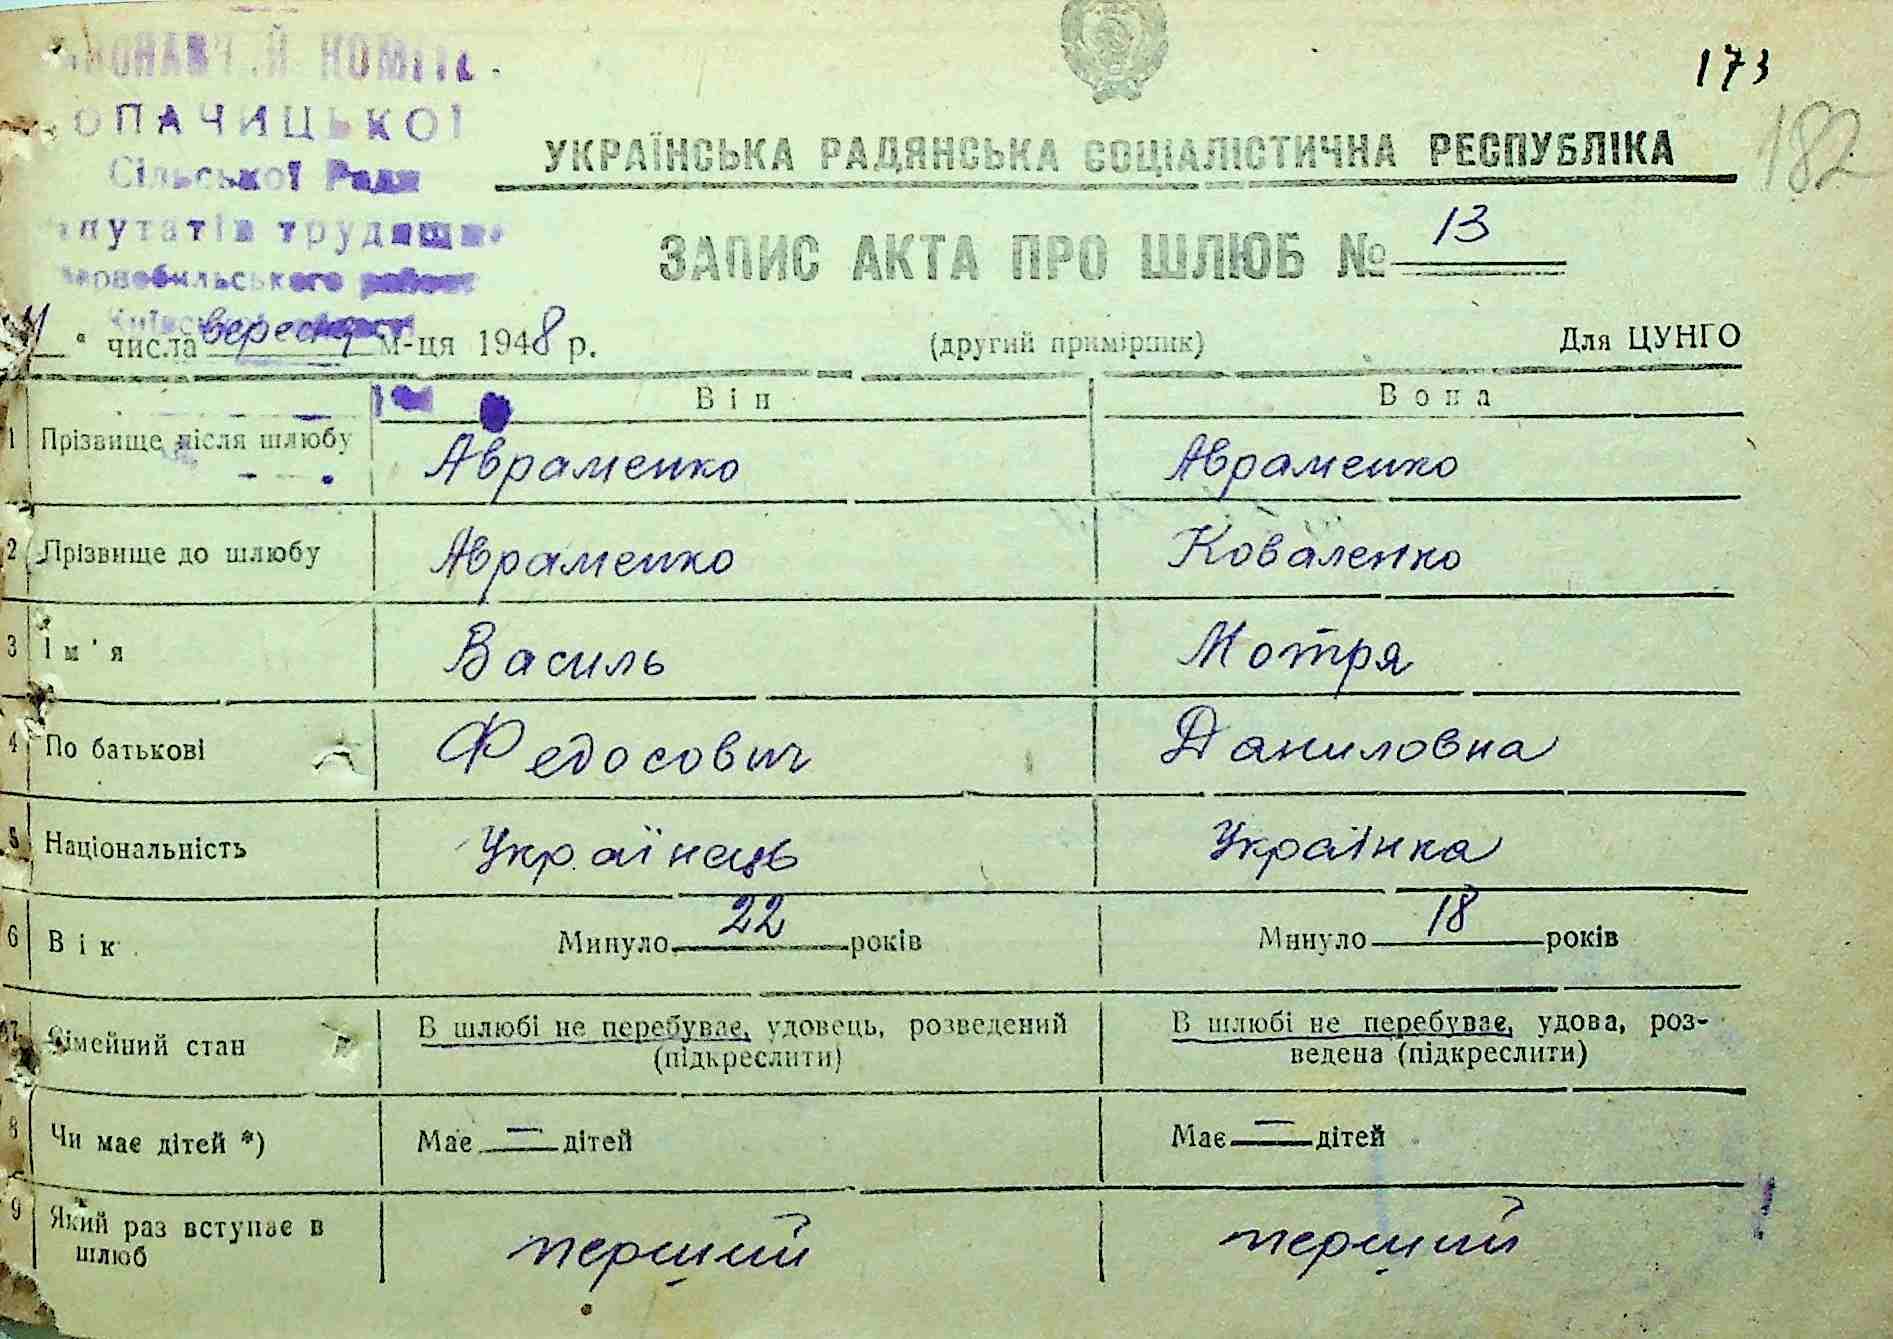 173
182
ОПАЧИЦЬКОЇ
Сільської Ради
трудящи
УКРАЇНСЬКА РАДЯНСЬКА СОЦІАЛІСТИЧНА РЕСПУБЛІКА
ЗАПИС АКТА ПРО ШЛЮБ № 13
числа вересня м-ця 1948 р. (другий примірник) Для ЦУНГО
Він Вона
1 Прізвище після шлюбу Авраменко Авраменко
2 Прізвище до шлюбу Авраменко Коваленко
3 Ім'я Василь Мотря
4 По батькові Федосович Даниловна
5 Національність Українець Українка
6 Вік Минуло 22 років Минуло 18 років
7 Сімейний стан В шлюбі не перебуває, удовець, розведений В шлюбі не перебуває, удова, роз-
(підкреслити) ведена (підкреслити)
8 Чи має дітей *) Має — дітей Має — дітей
9 Який раз вступає в
шлюб перший перший